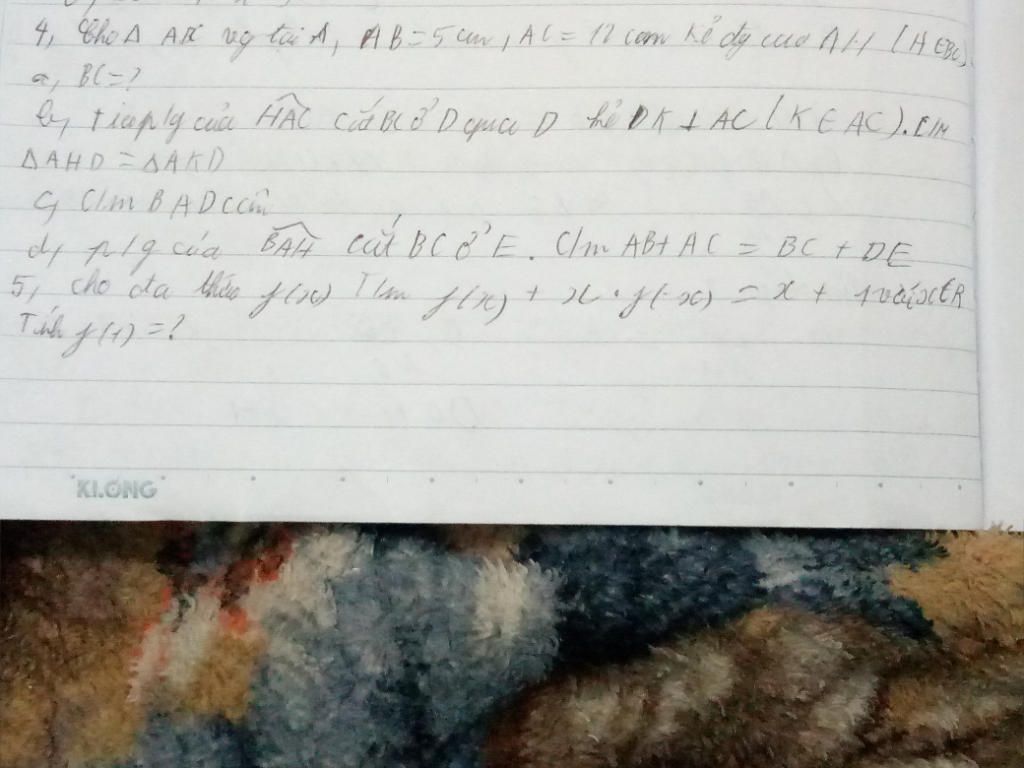 4, Cho Δ ABC vg tại A, AB = 5 cm, AC = 12 cm kẻ đg cao AH (H ∈ BC).
a, BC = ?
b, tia p/g của HAC cắt BC ở D qua D kẻ DK ⊥ AC (K ∈ AC). C/m
Δ AHD = Δ AKD
c, C/m BAD cân
d, p/g của BAH cắt BC ở E. C/m AB + AC = BC + DE
5, cho đa thức f(x) T/m f(x) + x . f(-x) = x + 1 với x ∈ R
Tính f(1) = ?
KLONG